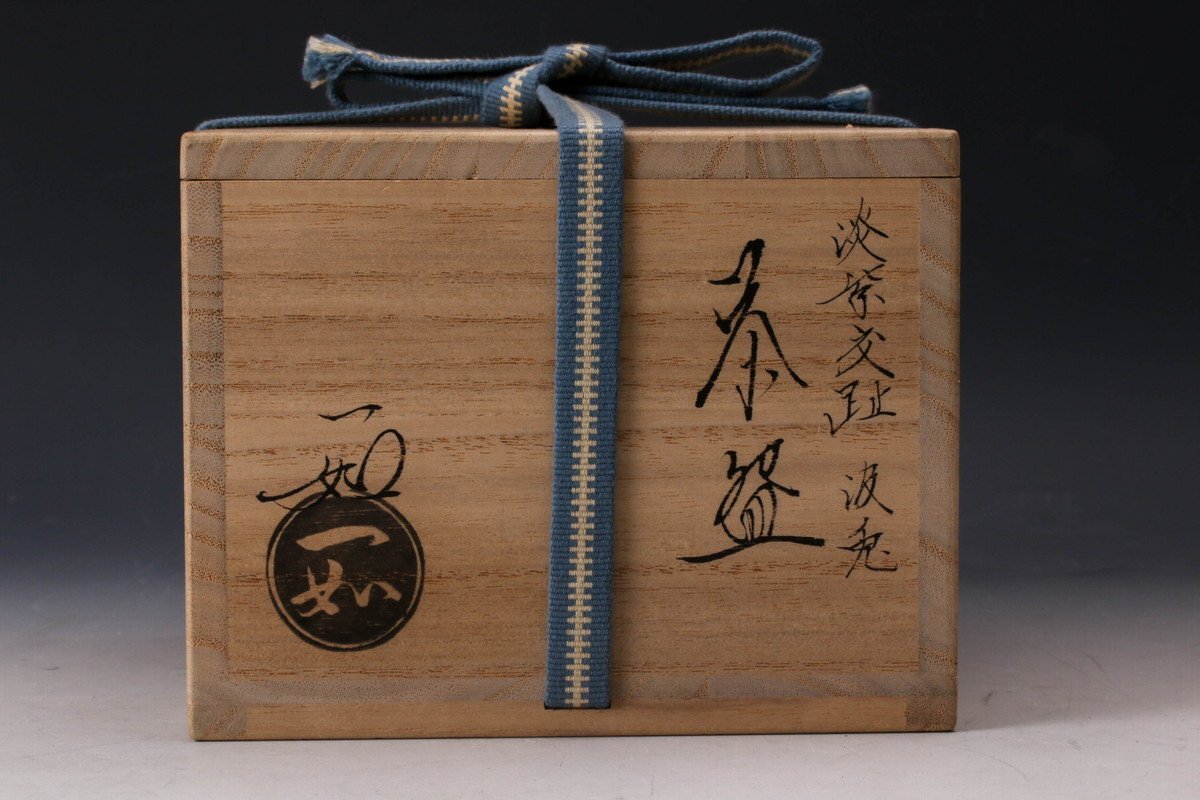 淡紫交趾 波兎
茶盌
一如
一如